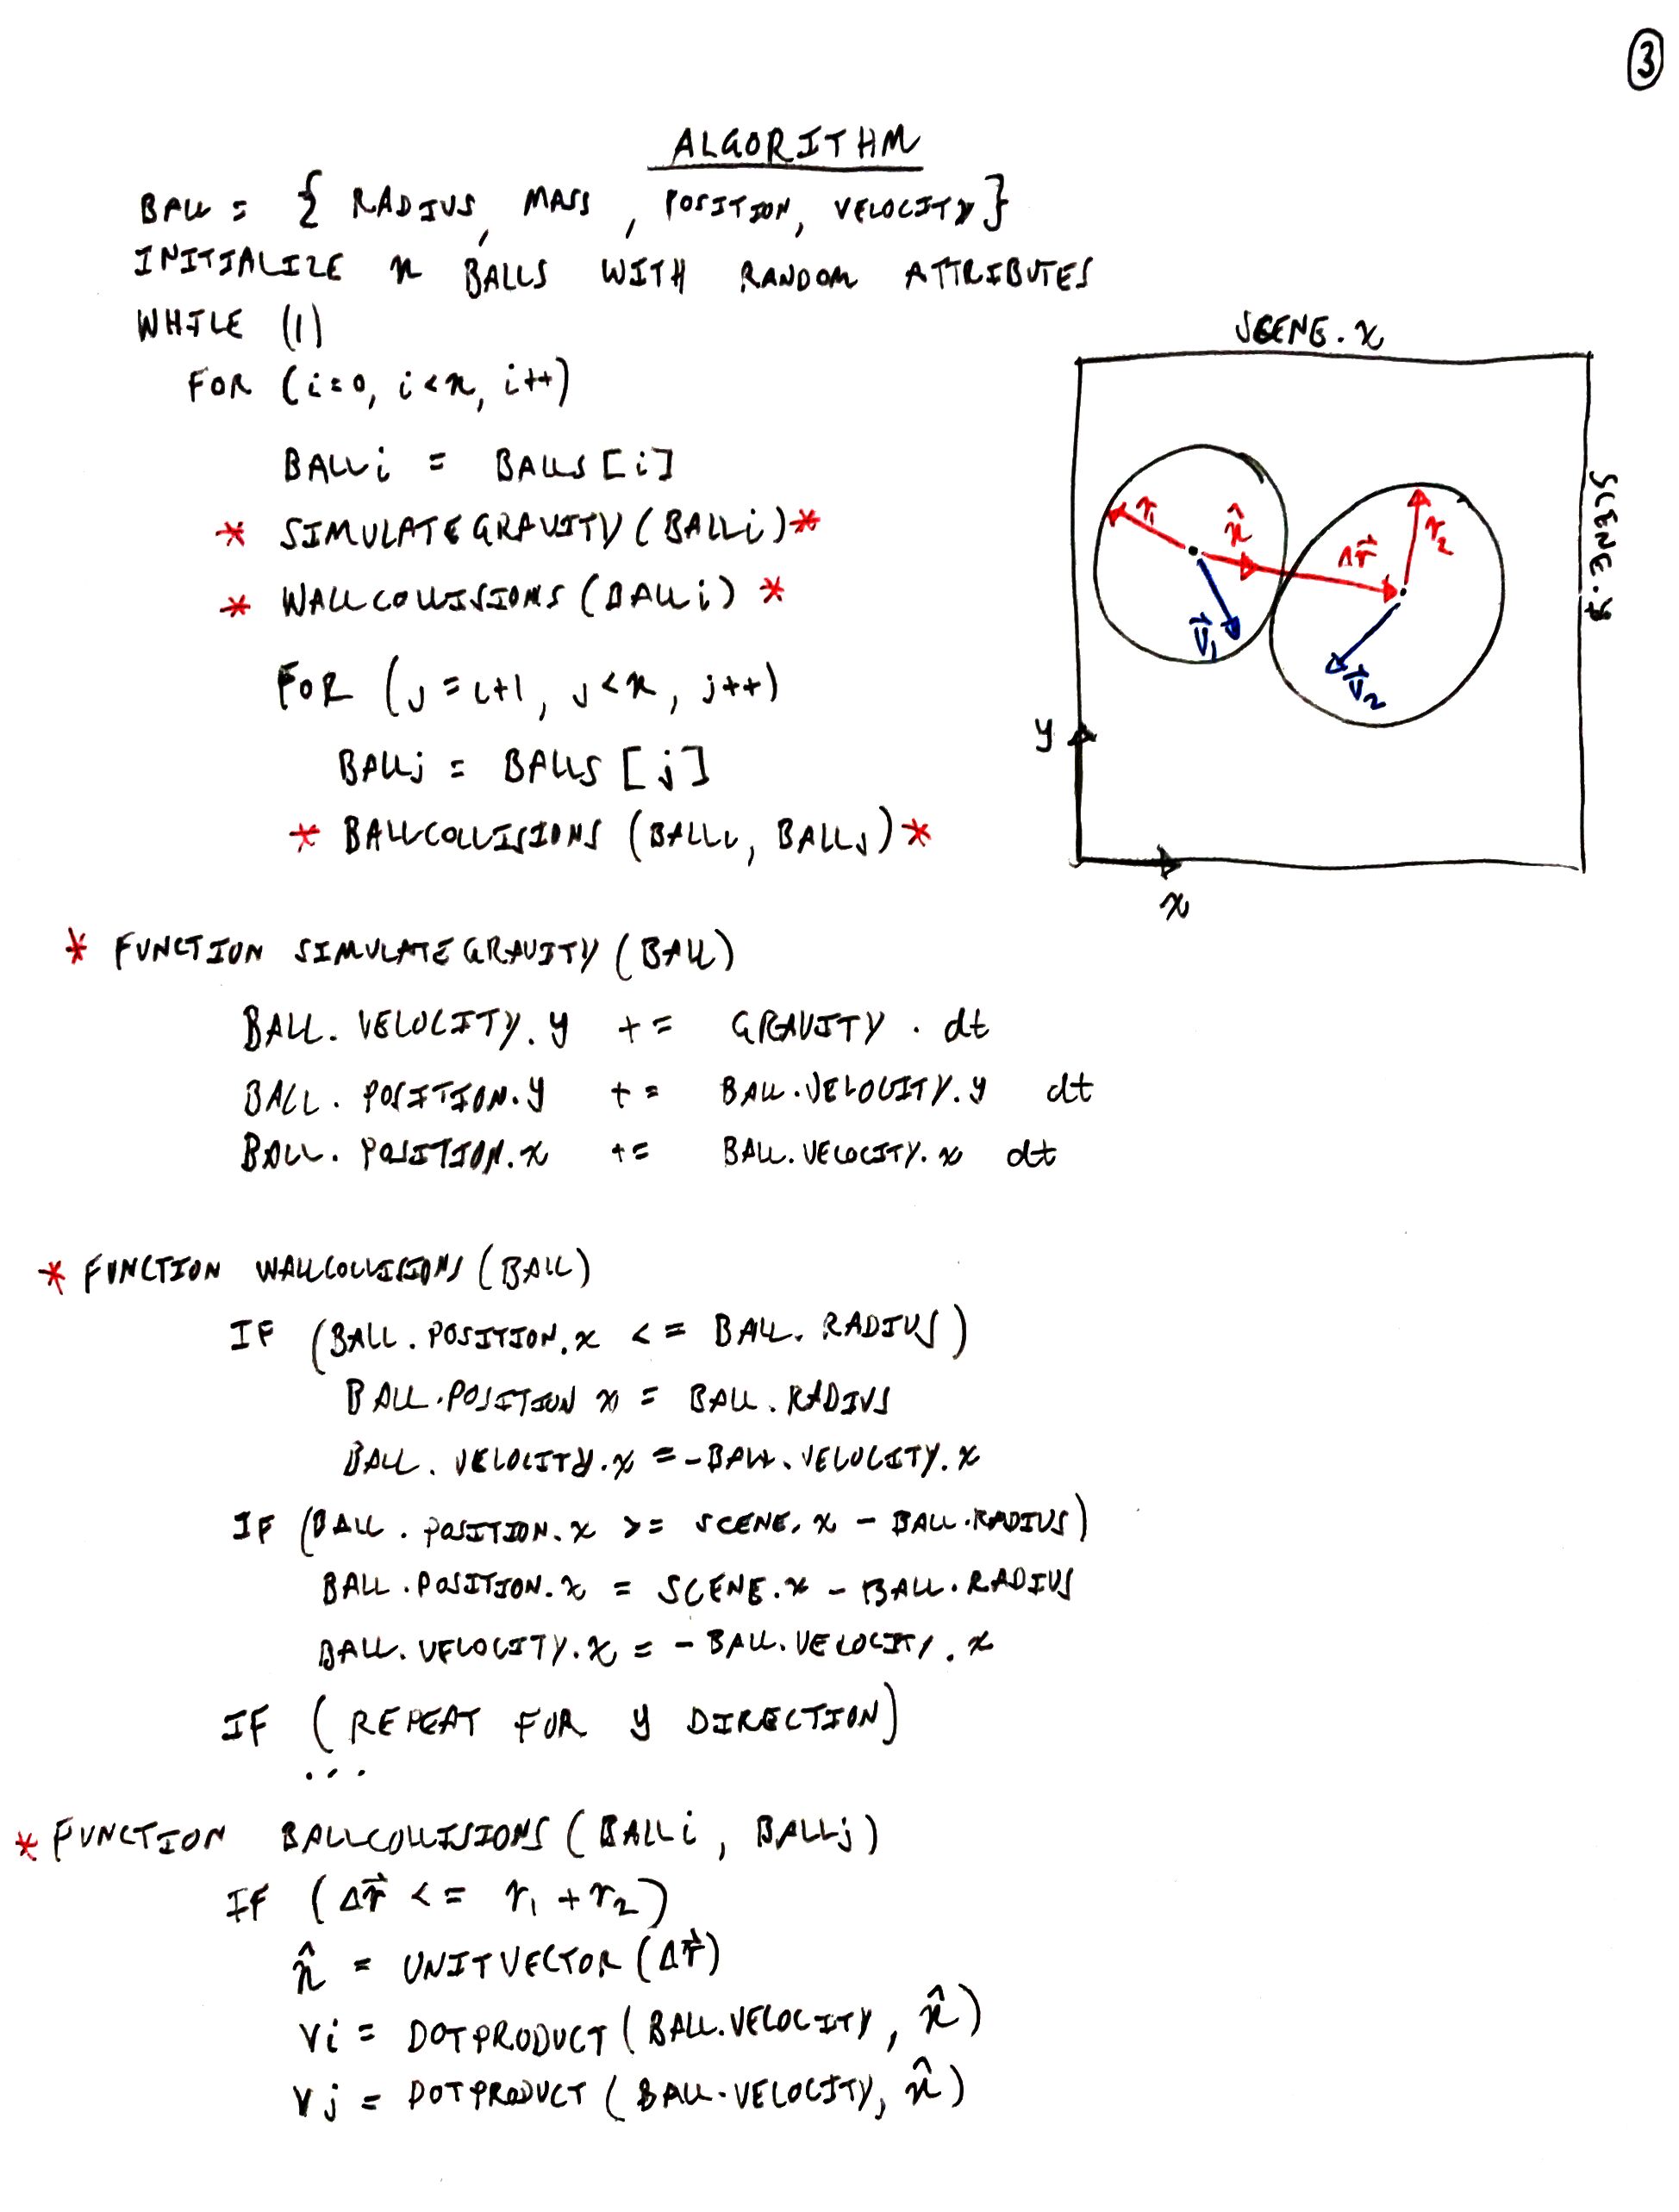 3
ALGORITHM
BALL = { RADIUS, MASS, POSITION, VELOCITY}
INITIALIZE n BALLS WITH RANDOM ATTRIBUTES
WHILE (1)
FOR (i=0, i<n, i++)
BALLi = BALLS[i]
* SIMULATEGRAVITY(BALLi)*
* WALLCOLLISIONS(BALLi) *
FOR (j=i+1, j<n, j++)
BALLj = BALLS[j]
* BALLCOLLISIONS (BALLi, BALLj)*
SCENE.x
SCENE.y
r₁
n̂
Δr⃗
r₂
v⃗₁
v⃗₂
y
x
* FUNCTION SIMULATEGRAVITY(BALL)
BALL.VELOCITY.y += GRAVITY . dt
BALL.POSITION.y += BALL.VELOCITY.y dt
BALL.POSITION.x += BALL.VELOCITY.x dt
* FUNCTION WALLCOLLISIONS(BALL)
IF (BALL.POSITION.x <= BALL.RADIUS)
BALL.POSITION x = BALL.RADIUS
BALL.VELOCITY.x = -BALL.VELOCITY.x
IF (BALL.POSITION.x >= SCENE.x - BALL.RADIUS)
BALL.POSITION.x = SCENE.x - BALL.RADIUS
BALL.VELOCITY.x = - BALL.VELOCITY.x
IF (REPEAT FOR y DIRECTION)
...
* FUNCTION BALLCOLLISIONS(BALLi, BALLj)
IF (Δr⃗ <= r₁ + r₂)
n̂ = UNITVECTOR(Δr⃗)
vi = DOTPRODUCT(BALL.VELOCITY, n̂)
vj = DOTPRODUCT(BALL.VELOCITY, n̂)